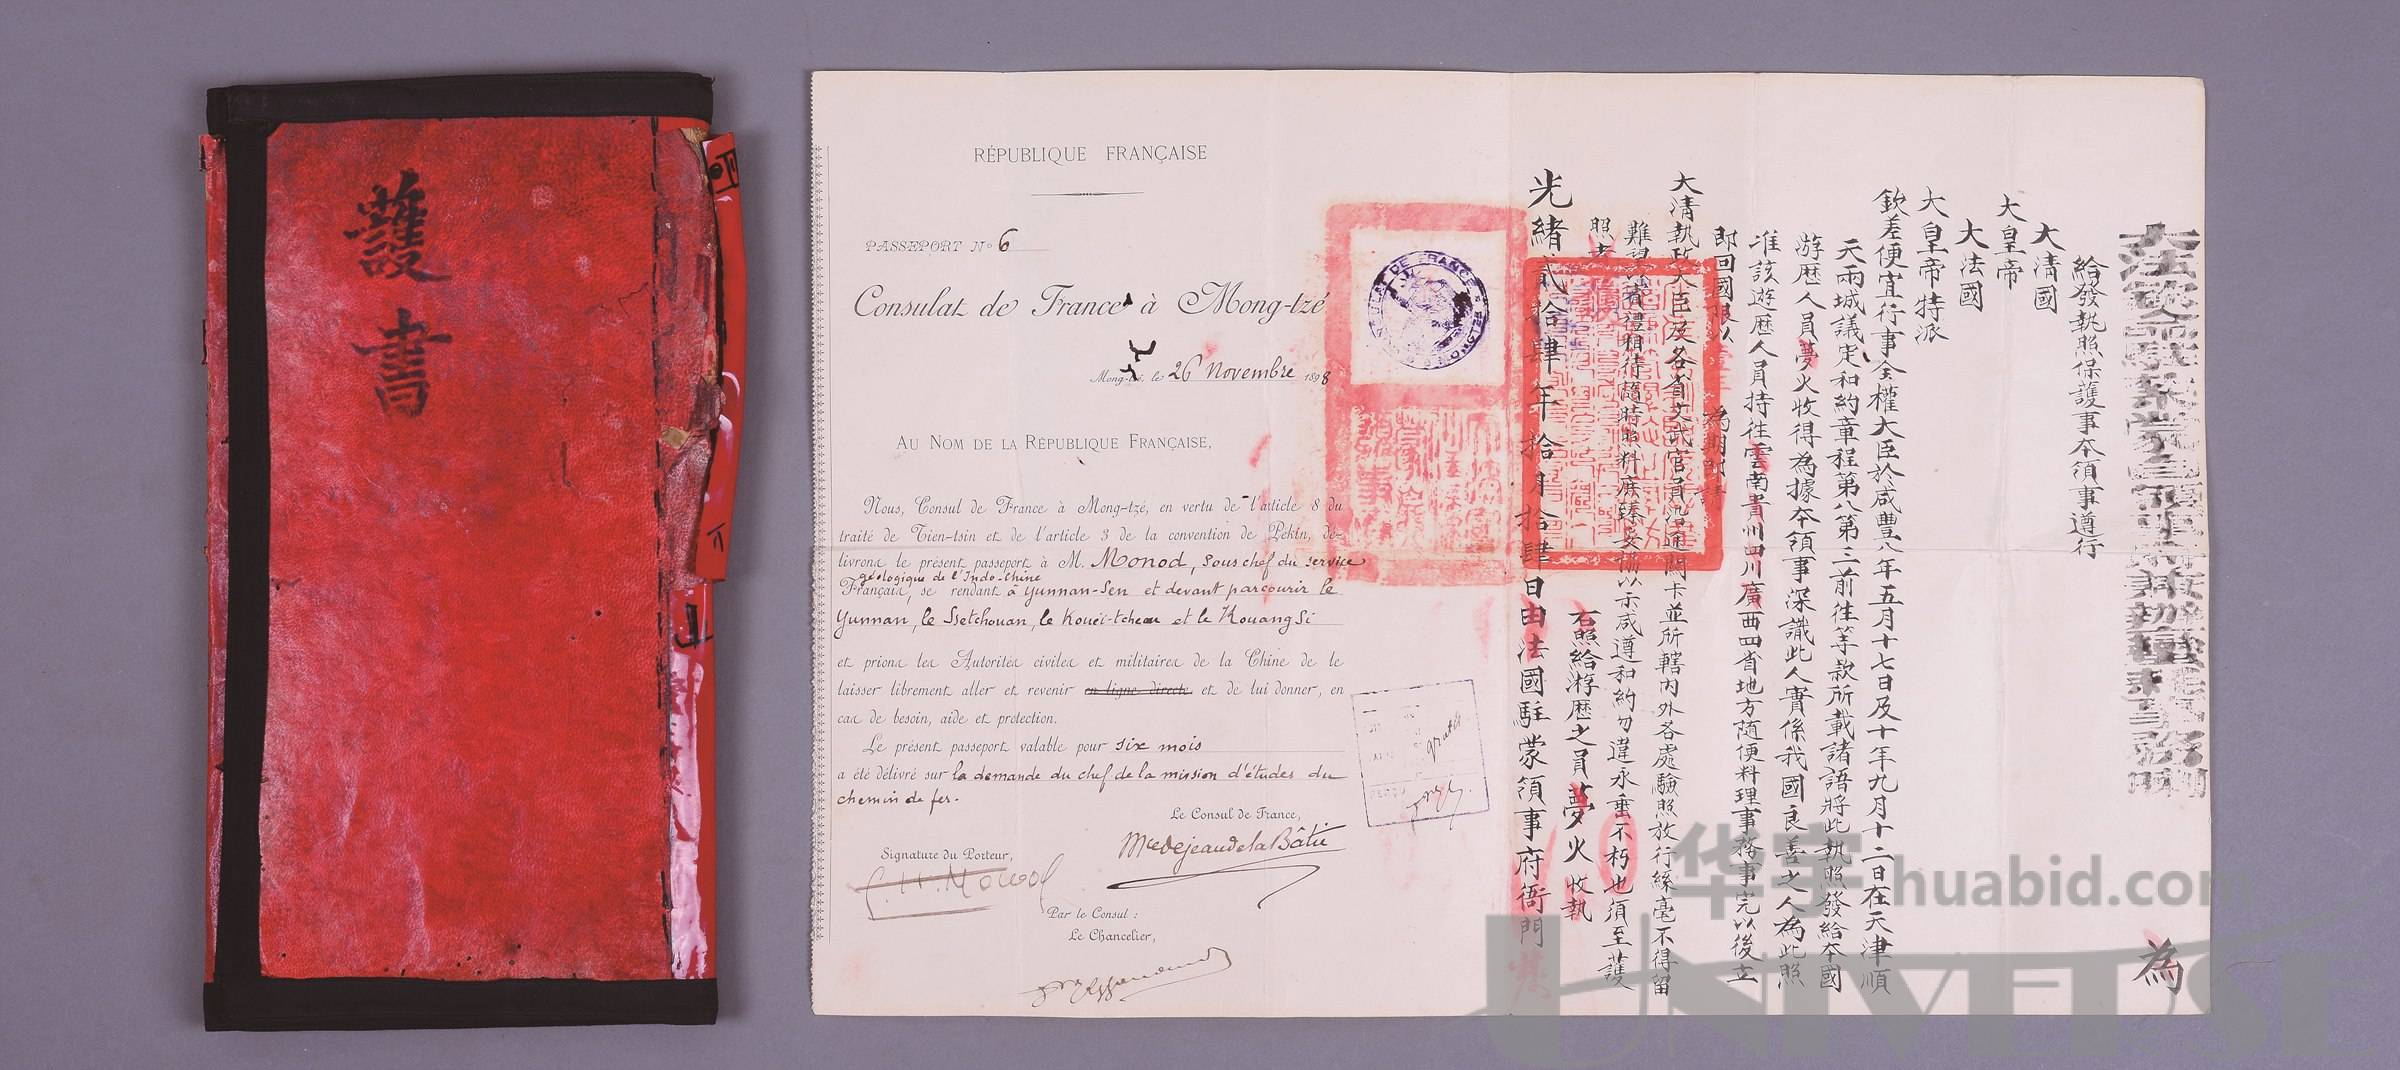 護書
RÉPUBLIQUE FRANÇAISE
PASSEPORT Nº 6
Consulat de France à Mong-tzé
Mong-tzé, le 26 Novembre 1898
AU NOM DE LA RÉPUBLIQUE FRANÇAISE,
Nous, Consul de France à Mong-tzé, en vertu de l'article 8 du
traité de Tien-tsin et de l'article 3 de la convention de Pékin, dé-
livrons le présent passeport à M. Monod, sous chef du service
géologique de l'Indo-Chine
Français, se rendant à Yunnan-Sen et devant parcourir le
Yunnan, le Ssetchouan, le Kouei-tcheou et le Kouang Si
et prions les Autorités civiles et militaires de la Chine de le
laisser librement aller et revenir en ligne directe et de lui donner, en
cas de besoin, aide et protection.
Le présent passeport valable pour six mois
a été délivré sur la demande du chef de la mission d'études du
chemin de fer.
Le Consul de France,
Signature du Porteur,
Par le Consul :
Le Chancelier,
CONSULAT DE FRANCE
gratis
為
給發執照保護事本領事遵行
大清國
大皇帝
大法國
大皇帝特派
欽差便宜行事全權大臣於咸豐八年五月十七日及十年九月十二日在天津順
天兩城議定和約章程第八第三前往等款所載諸語將此執照發給本國
游歷人員夢火收得為據本領事深識此人實係我國良善之人為此照
准該遊歷人員持往雲南貴州四川廣西四省地方隨便料理事務事完以後立
即回國限以 為期即請
大清執政大臣及各省文武官員沿途關卡並所轄內外各處驗照放行絲毫不得留
難望以禮相待隨時照料 以示咸遵和約勿違永垂不朽也須至護
照者
右照給游歷之員夢火收執
光緒貳拾肆年拾月拾肆日由法國駐蒙領事府衙門
华宇 huabid.com
UNIVERSE